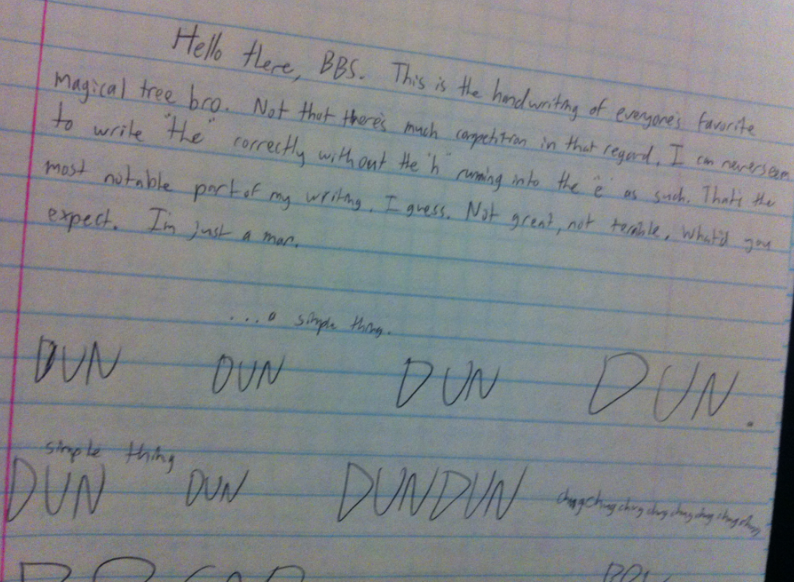 Hello there, BBS. This is the handwriting of everyone's favorite
magical tree bro. Not that there's much competition in that regard. I can never seem
to write "the" correctly without the "h" running into the "e" as such. That's the
most notable part of my writing, I guess. Not great, not terrible. What'd you
expect. I'm just a man.
...a simple thing.
DUN DUN DUN DUN.
simple thing
DUN DUN DUNDUN chugchug chug chug chug chug chug chug